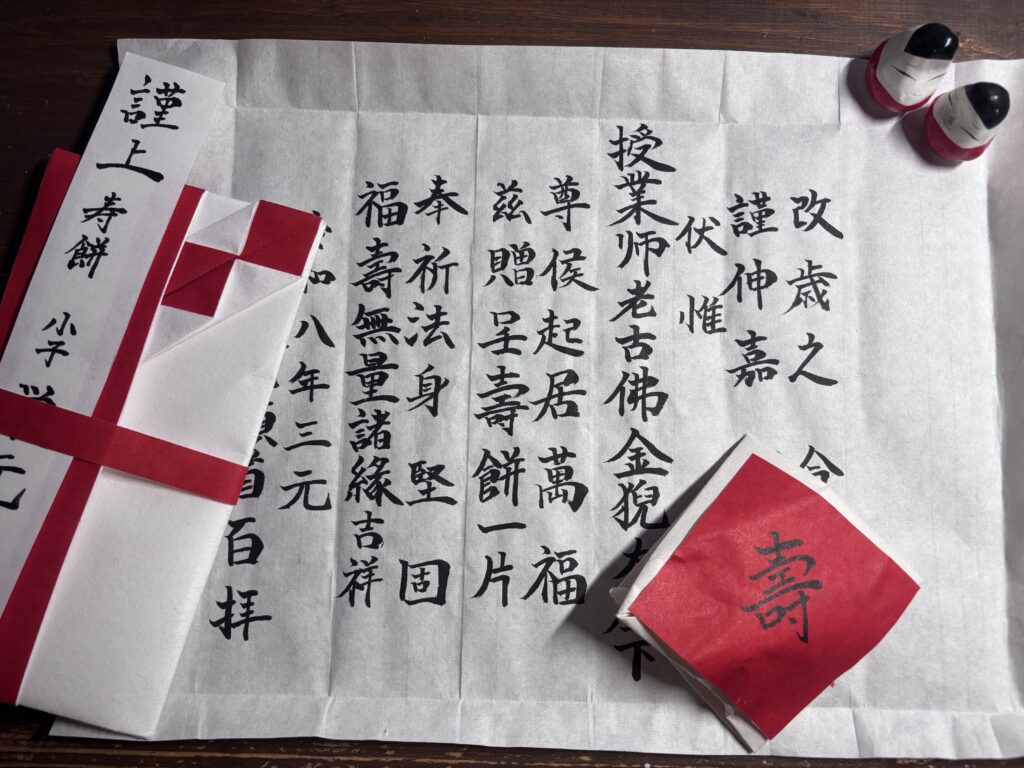 改歳之
謹伸嘉
伏惟
授業师老古佛金猊下
尊候起居萬福
茲贈呈壽餅一片
奉祈法身堅固
福壽無量諸緣吉祥
和八年三元
首百拝
謹上
寿餅
小子
元
壽